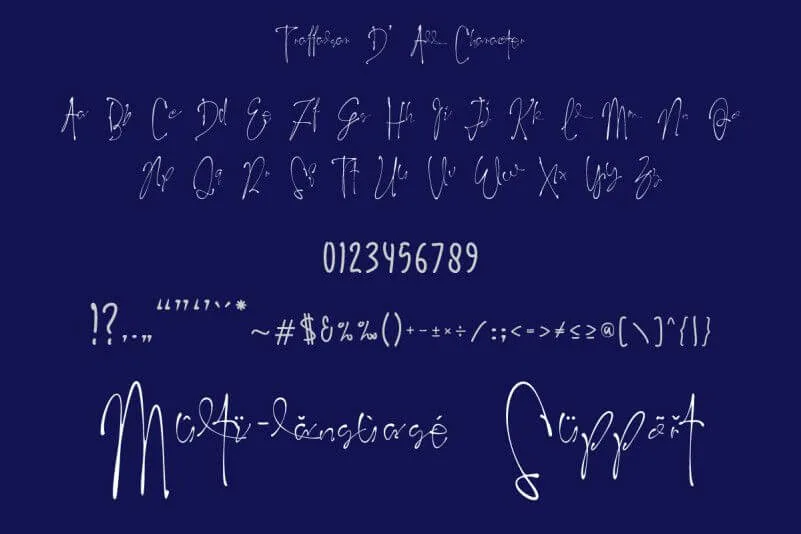 Traffadgar D' All Character
Aa Bb Cc Dd Ee Ff Gg Hh Ii Jj Kk Ll Mm Nn Oo
Pp Qq Rr Ss Tt Uu Vv Ww Xx Yy Zz
0123456789
!?,.„“”‘’`´*~#$&%‰()+-±×÷/:;<=>≠≤≥@[\]^{|}
Mûltÿ-lăngùagé Süppãřt